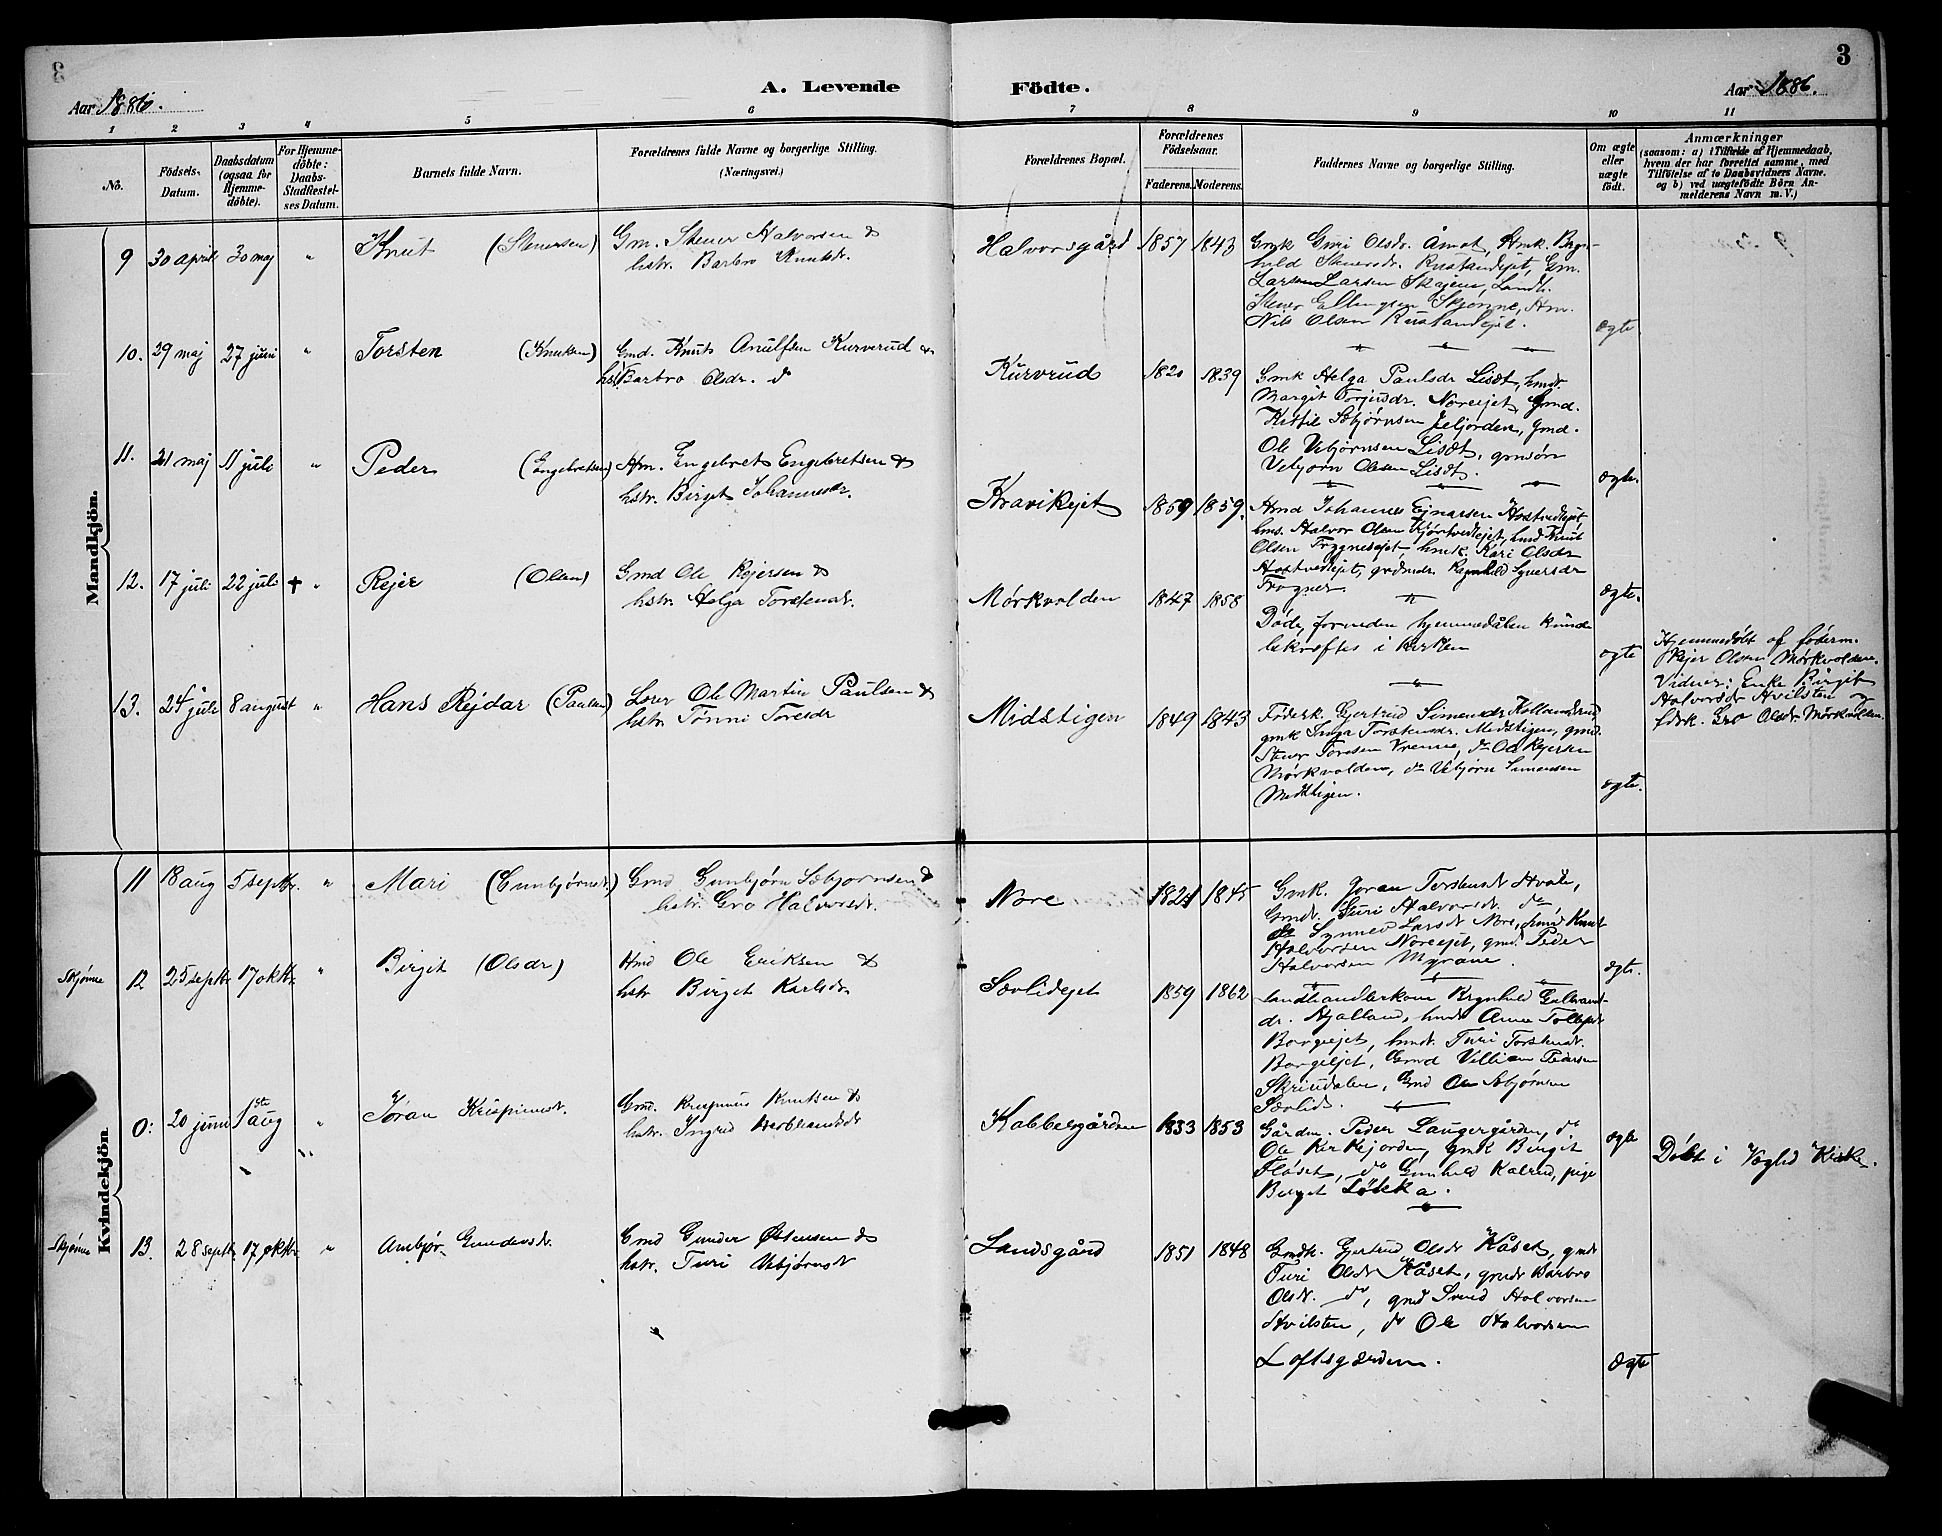 3
Aar 1886.
A. Levende Födte.
Aar 1886.
1 2 3 4 5 6 7 8 9 10 11
No.
Födsels-Datum.
Daabsdatum (ogsaa for Hjemme-döbte).
For Hjemme-döbte: Daabs-Stadfæstel-ses Datum.
Barnets fulde Navn.
Forældrenes fulde Navne og borgerlige Stilling.
(Næringsvei.)
Forældrenes Bopæl.
Forældrenes Födselsaar.
Faderens. Moderens.
Faddernes Navne og borgerlige Stilling.
Om ægte eller uægte födt.
Anmærkninger
(saasom: a) i Tilfælde af Hjemmedaab,
hvem der har forrettet samme, med
Tilföielse af to Daabsvidners Navne.
og b) ved uægtefödte Börn An-
melderens Navn m. V.)
Mandkjön.
9 30 april 30 maj " Knut (Stenersen)
Gm. Stener Halvorsen &
hstr. Barbro Knutsdr.
Halvorsgård 1857 1843
Gmk Guri Olsdr. Åmot, Hmk. Bryn-
hild Stenersdr. Rustandejet, Gm.
Lars Larsen Skajem, Landh.
Stener Ellingsen Skjønne, Hm.
Nils Olsen Rustandejet.
ægte
10. 29 maj 27 juni " Torsten (Knutsen)
Gmd. Knut Anulfsen Kurverud &
hst. Barbro Olsdr. do
Kurvrud 1820 1839
Gmk Helga Paulsdr Lisdt, hmdt.
Margit Torjusdr. Noreejet, Gmd.
Kittil Sebjørnsen Jeljorden, gmd.
Ole Vebjørnsen Lisdt, gmsøn
Vebjørn Olsen Lisdt.
ægte.
11. 21 maj 11 juli " Peder (Engebretsen)
Hm. Engebret Engebretsen &
hstr. Birget Johannesdr.
Kravikejet 1859 1859.
Hmd Johannes Ejnarsen Hostvedtejet,
hms. Halvor Olsen Kjørtvedtejet, hmd Knut
Olsen Frygneejet, hmk. Kari Olsdr
Hostvedtejet, grdmdr. Ragnhild Synersdr
Frogner.
ægte.
12. 17 juli 22 juli † " Rejer (Olsen)
Gmd Ole Rejersen &
hstr. Helga Torstensdr.
Mørkvolden 1847 1858
Døde, forinden hjemmedåben kunde
bekræftes i kirken
ægte
Hjemmedøbt af føderm.
Rejer Olsen Mørkvolden.
Vidner: Enke Birgit
Halvorsdr Hvilsten og
fdrk. Gro Olsdr Mørkvolden.
13. 24 juli 8 august " Hans Rejdar (Paulsen)
Lærer Ole Martin Paulsen &
hstr. Tønni Toresdr
Midstigen 1849 1843
Føderk Gjertrud Simensdr Hollandsrud,
gmk Inga Torstensdr. Midstigen, gmd.
Stener Toresen Vrenne, do Ole Rejersen
Mørkvolden, do Vebjørn Simensen
Medstigen.
ægte.
Kvindekjön
11 18 aug 5 septbr. " Mari (Gunbjørnsdr.)
Gmd Gunbjørn Sebjørnsen &
hstr. Gro Halvorsdr.
Nore 1821 1845
Gmk. Joran Torstensdt Hvåle,
Gmdr. Turi Halvorsdr. do
Synnev Larsdt Nore, hmd Knut
Halvorsen Noreejet, gmd. Peder
Halvorsen Myrane.
ægte.
Skjønne 12 25 septbr 17 oktbr. " Birgit (Olsdr)
Hmd Ole Eriksen &
hstr Birget Karlsdr
Sævlidejet 1859 1862
Landhandlerkone Brynhild Gulbrands-
dr. Hjalland, hmdr Anne Tollefsdr
Borgeejet, hmdt. Turi Torstensdr.
Borgeejet, Gmd Villiam Pedersen
Skriudalen, Gmd Ole Sebjørnsen
Sævlid.
ægte
0: 20 juni 1ste aug " Jøran Krispinusdr.
Gmd. Krispinus Knutsen &
hstr. Ingrid Herbrandsdr
Kabbelgården 1833 1853
Gårdm. Peder Laugergården, do
Ole Kirkejorden, gmk Birgit
Fløset, do Gunhild Kalrud, pige
Birget Løkka.
Døbt i Veglid Kirke.
Skjønne 13. 28 septbr 17 oktbr. " Ambjør Gundersdr.
Gmd Gunder Østensen &
hstr. Turi Vebjørnsdt
Landsgård 1851 1848
Gmdk. Gjertrud Olsdr Kåset, gmdr
Turi Olsdr Kåset, gmdr Barbro
Olsdt. do, gmd Svend Halvorsen
Hvilsten, do Ole Halvorsen
Loftsgarden.
ægte